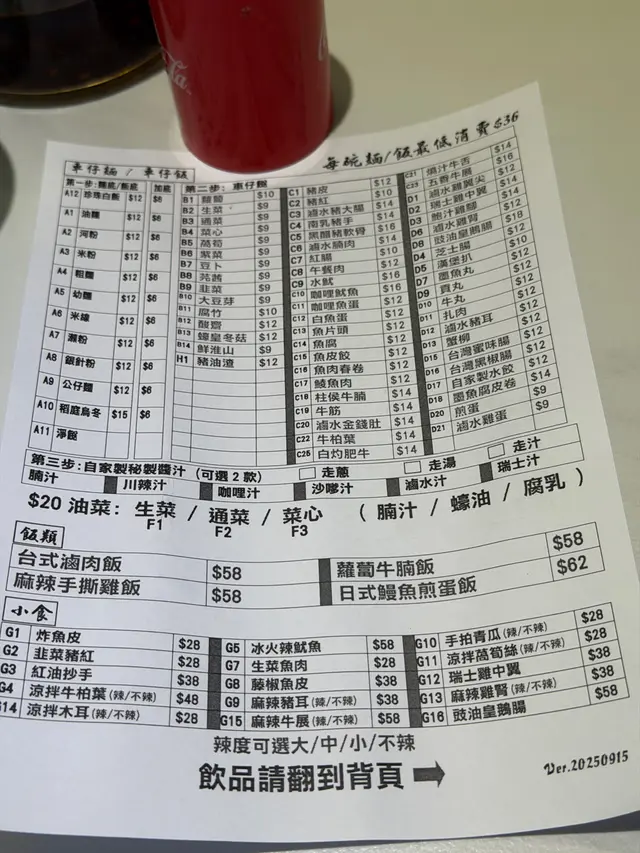 每碗麵/飯最低消費$36
車仔麵 / 車仔飯
第一步: 麵底/飯底 加底
A12 珍珠白飯 $12 $6
A1 油麵 $12 $6
A2 河粉 $12 $6
A3 米粉 $12 $6
A4 粗麵 $12 $6
A5 幼麵 $12 $6
A6 米線 $12 $6
A7 瀨粉 $12 $6
A8 銀針粉 $12 $6
A9 公仔麵 $12 $6
A10 稻庭烏冬 $15 $6
A11 淨餸
第二步: 車仔餸
B1 蘿蔔 $10
B2 生菜 $9
B3 通菜 $9
B4 菜心 $9
B5 萵筍 $9
B6 紫菜 $9
B7 豆卜 $9
B8 芫茜 $9
B9 韭菜 $9
B10 大豆芽 $9
B11 腐竹 $10
B12 酸齋 $12
B13 蠔皇冬菇 $12
B14 鮮淮山 $9
H1 豬油渣 $12
C1 豬皮 $12
C2 豬紅 $10
C3 滷水豬大腸 $16
C4 南乳豬手 $14
C5 黑醋豬軟骨 $16
C6 滷水腩肉 $14
C7 紅腸 $10
C8 午餐肉 $12
C9 水魷 $16
C10 咖哩魷魚 $16
C11 咖哩魚蛋 $12
C12 白魚蛋 $12
C13 魚片頭 $12
C14 魚腐 $12
C15 魚皮餃 $12
C16 魚肉春卷 $12
C17 鯪魚肉 $12
C18 柱侯牛腩 $14
C19 牛筋 $14
C20 滷水金錢肚 $14
C22 牛柏葉 $14
C25 白灼肥牛 $14
C21 燒汁牛舌 $14
C23 五香牛展 $16
D1 滷水雞翼尖 $14
D2 瑞士雞中翼 $14
D3 鮑汁雞腳 $14
D6 滷水雞腎 $14
D8 豉油皇鵝腸 $18
D4 芝士腸 $10
D5 漢堡扒 $12
D7 墨魚丸 $12
D9 貢丸 $12
D10 牛丸 $12
D11 扎肉 $12
D12 滷水豬耳 $12
D13 蟹柳 $12
D15 台灣蜜味腸 $12
D16 台灣黑椒腸 $12
D17 自家製水餃 $12
D18 墨魚腐皮卷 $14
D20 煎蛋 $9
D21 滷水雞蛋 $9
第三步: 自家製秘製醬汁 (可選 2 款) 走蔥 走湯 走汁
腩汁 川辣汁 咖哩汁 沙嗲汁 滷水汁 瑞士汁
$20 油菜: 生菜 / 通菜 / 菜心 ( 腩汁 / 蠔油 / 腐乳 )
F1 F2 F3
飯類
台式滷肉飯 $58 蘿蔔牛腩飯 $58
麻辣手撕雞飯 $58 日式鰻魚煎蛋飯 $62
小食
G1 炸魚皮 $28 G5 冰火辣魷魚 $58 G10 手拍青瓜(辣/不辣) $28
G2 韭菜豬紅 $28 G7 生菜魚肉 $28 G11 涼拌萵筍絲(辣/不辣) $28
G3 紅油抄手 $38 G8 藤椒魚皮 $38 G12 瑞士雞中翼 $38
G4 涼拌牛柏葉(辣/不辣) $48 G9 麻辣豬耳(辣/不辣) $38 G13 麻辣雞腎(辣/不辣) $38
G14 涼拌木耳(辣/不辣) $28 G15 麻辣牛展(辣/不辣) $58 G16 豉油皇鵝腸 $58
辣度可選大/中/小/不辣
飲品請翻到背頁
Ver.20250915